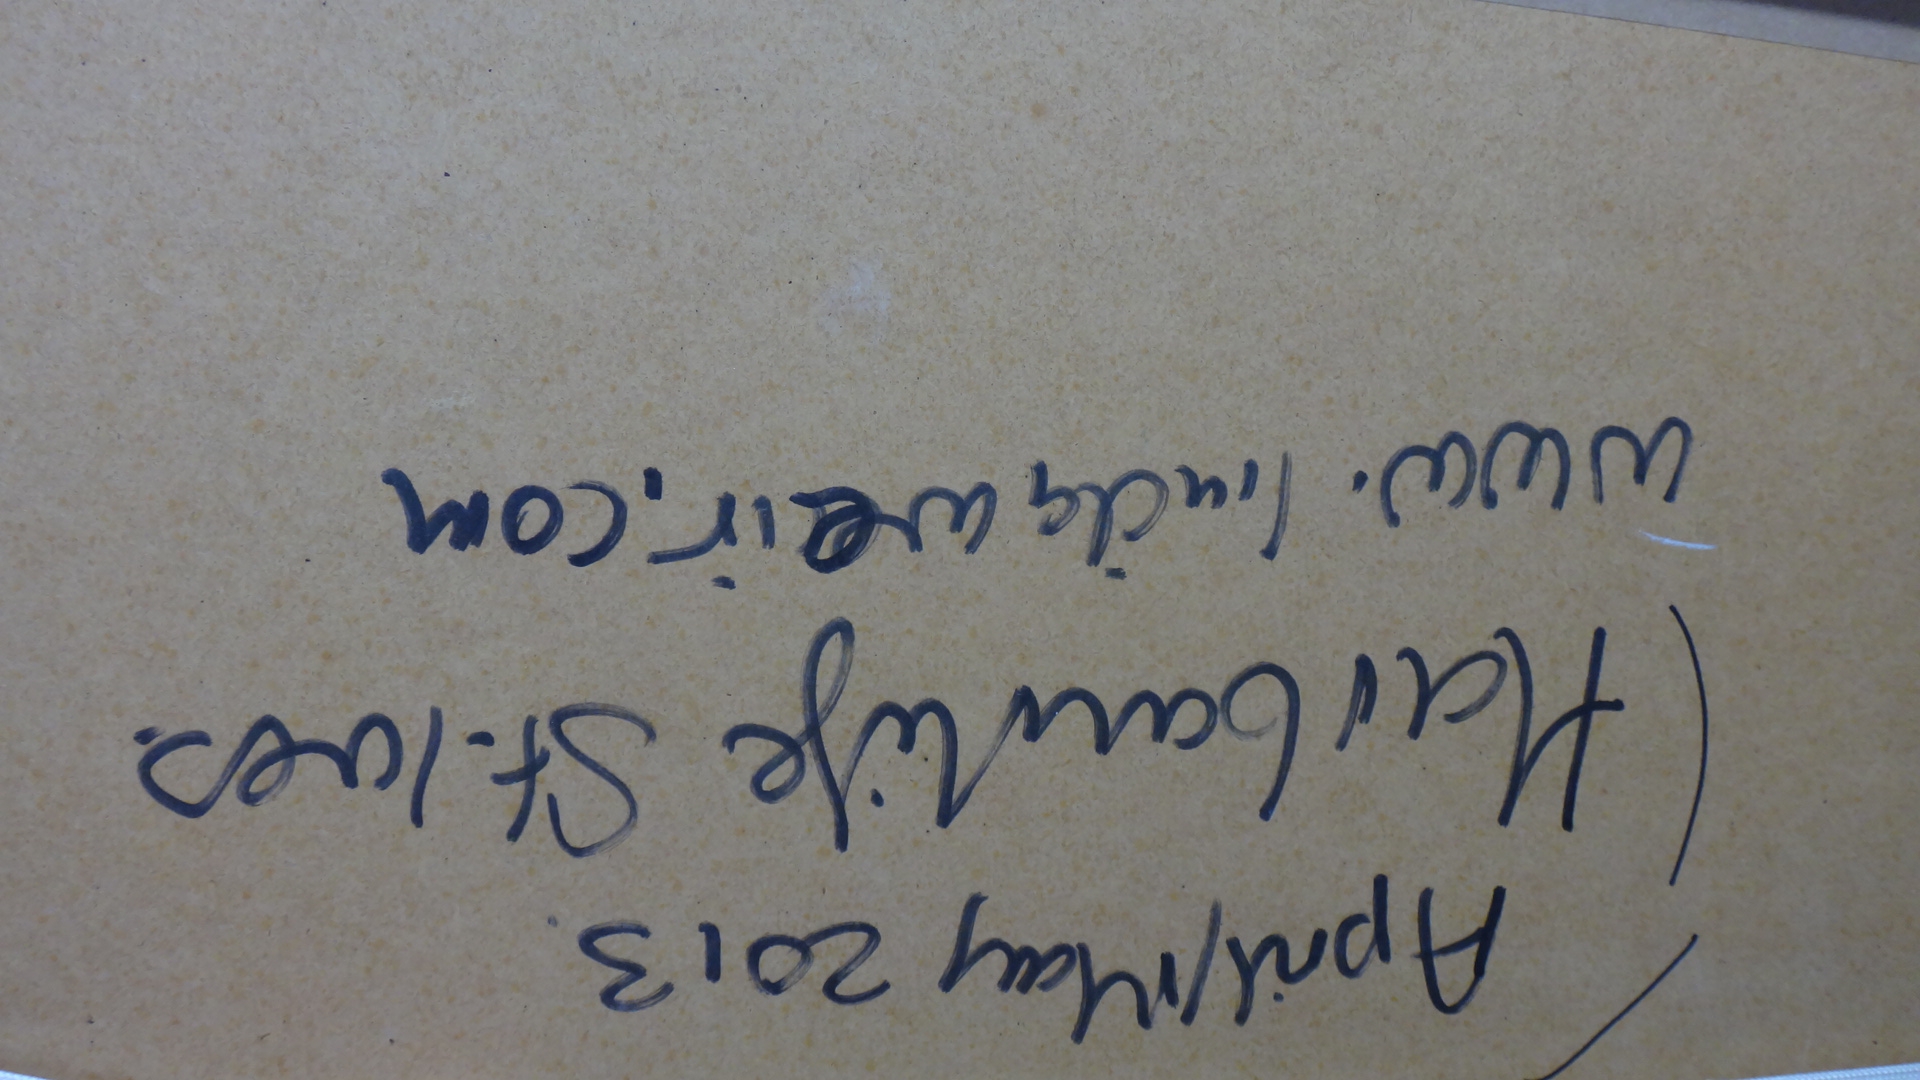 April/May 2013.
(Harbour life St. Ives.
www.lindaweir.com